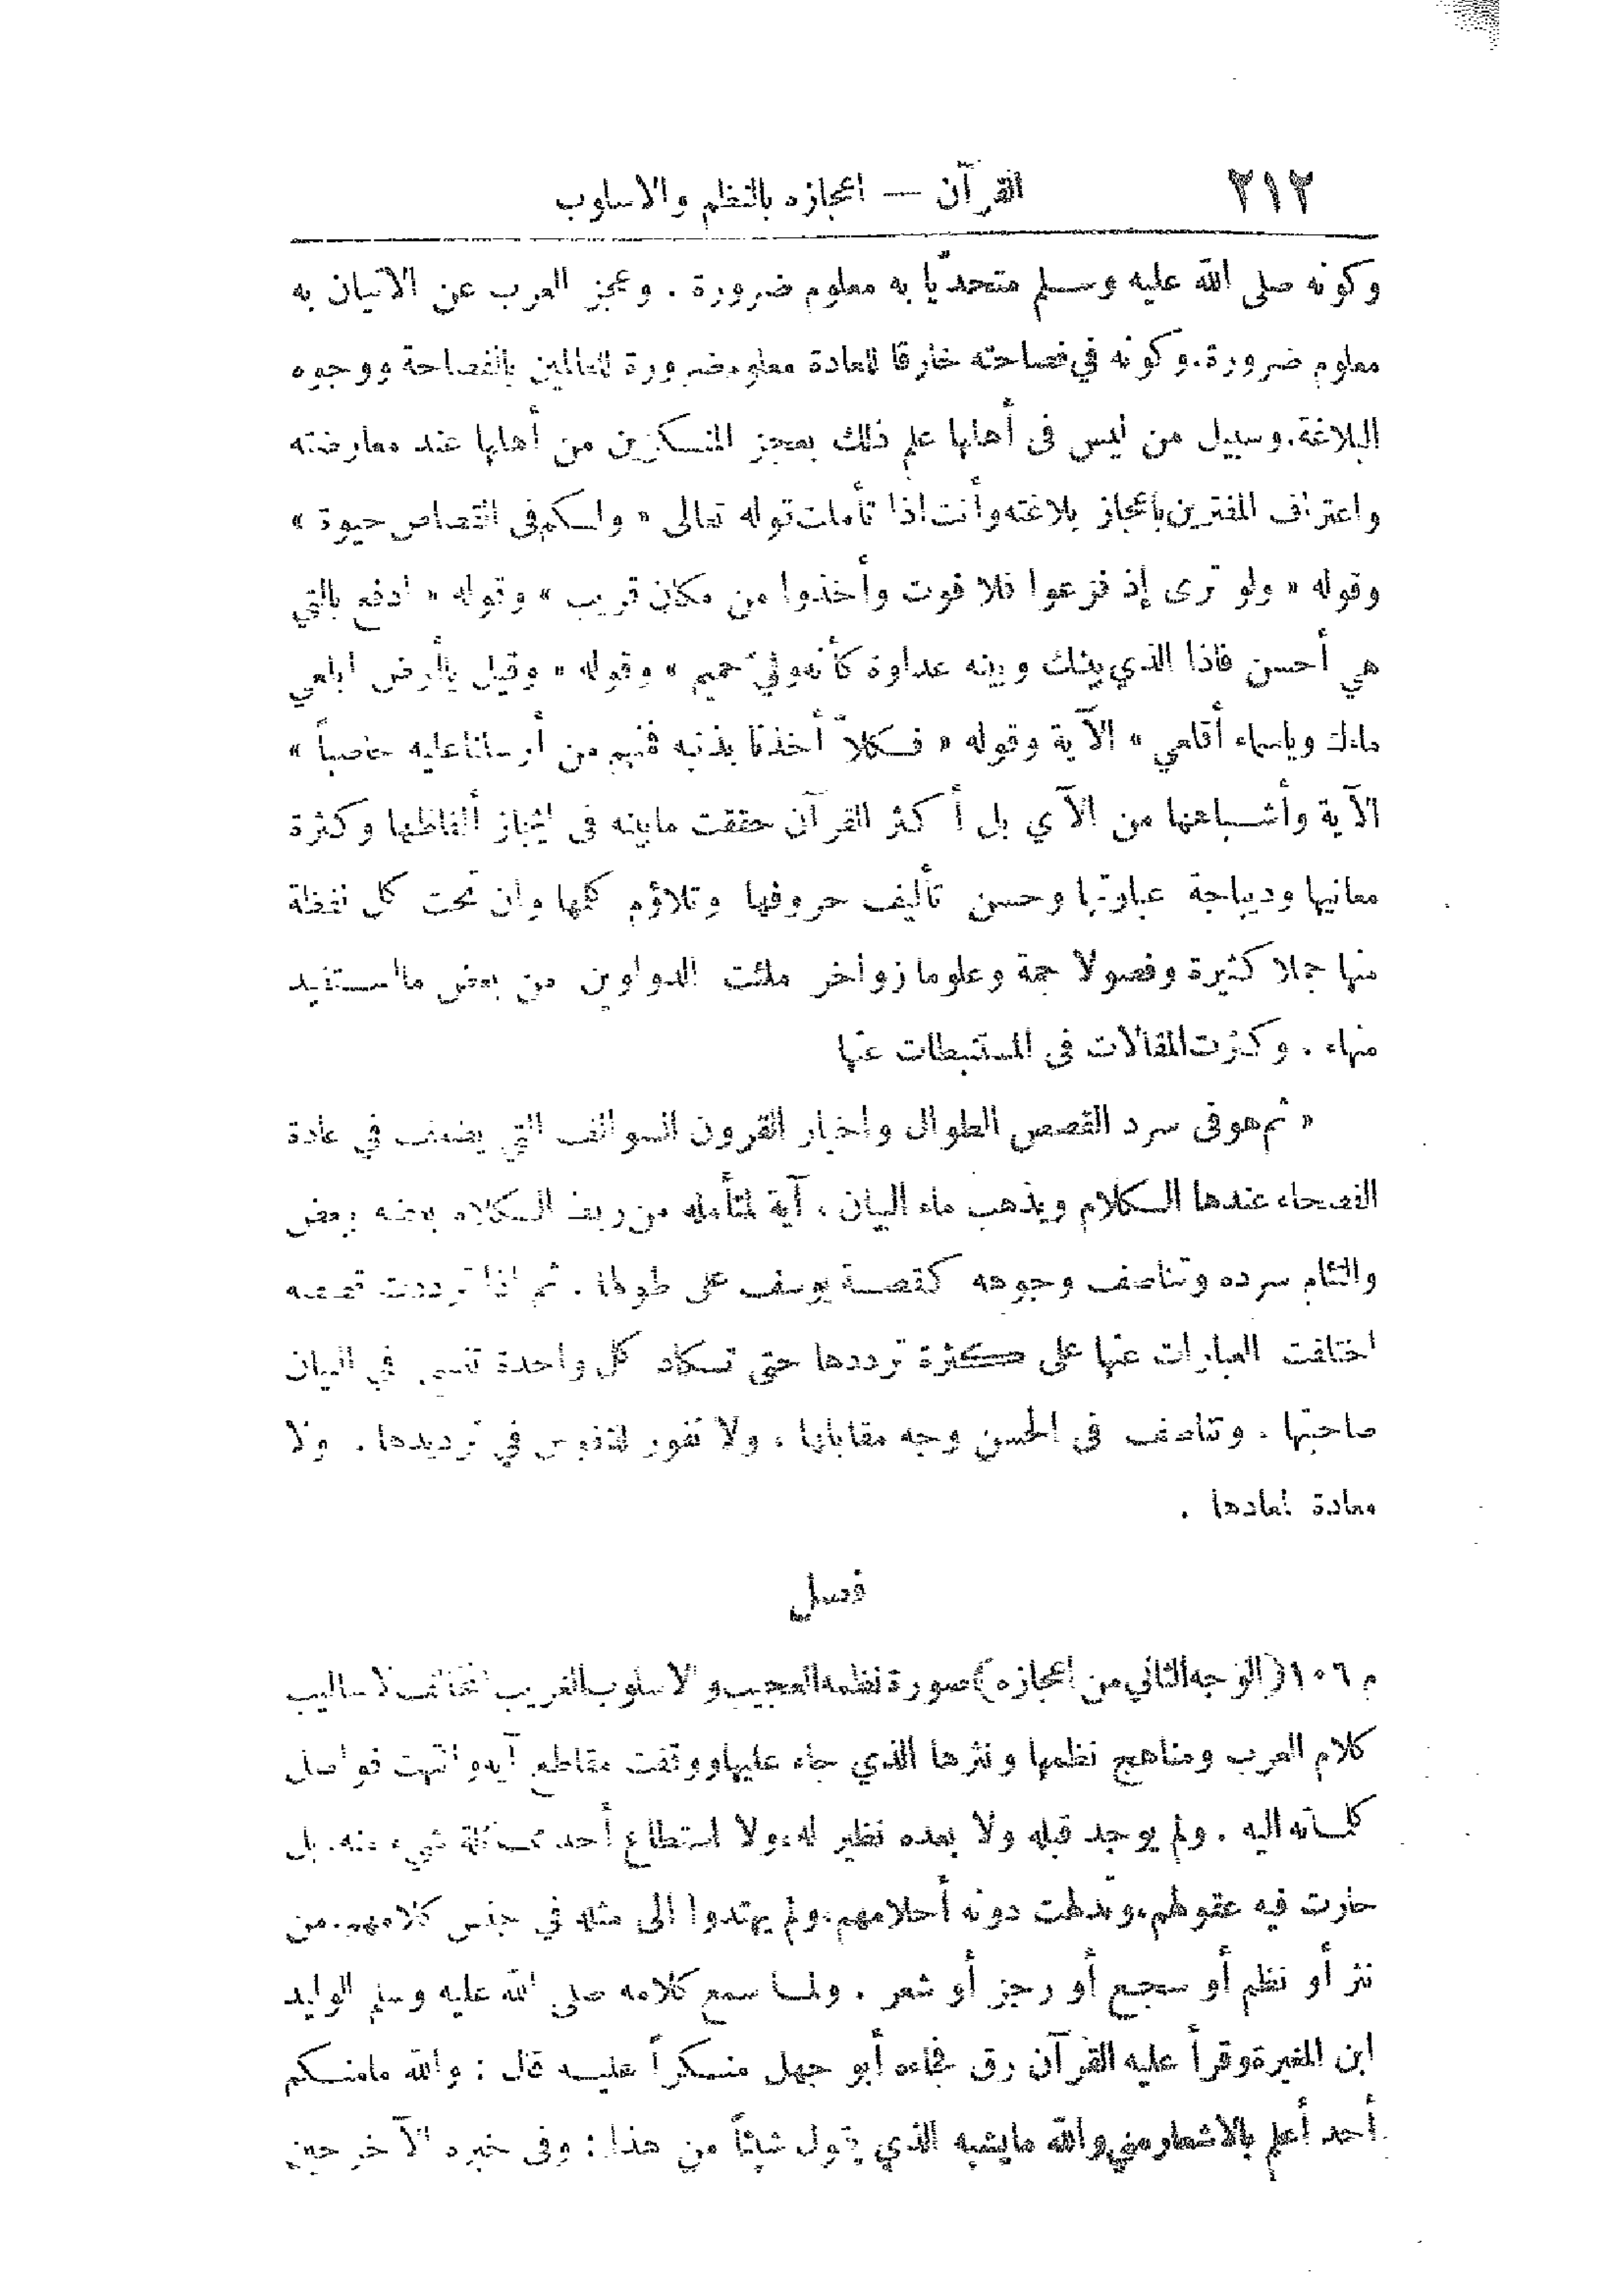 ٢١٢ القرآن — اعجازه بالنظم والاسلوب
وكونه صلى الله عليه وسلم متحديًا به معلوم ضرورة . وعجز العرب عن الاتيان به
معلوم ضرورة.وكونه في فصاحته خارقا للعادة معلوم ضرورة للعالمين بالفصاحة ووجوه
البلاغة.وسبيل من ليس فى أهلها علم ذلك بعجز المنكرين من أهلها عند معارضته
واعتراف المفترين باعجاز بلاغته وأنت اذا تأملت قوله تعالى « ولكم فى القصاص حيوة »
وقوله « ولو ترى إذ فزعوا فلا فوت وأخذوا من مكان قريب » وقوله « ادفع بالتي
هي أحسن فاذا الذي بينك وبينه عداوة كأنه وليّ حميم » وقوله « وقيل ياأرض ابلعي
ماءك وياسماء أقلعي » الآية وقوله « فكلاّ أخذنا بذنبه فمنهم من أرسلنا عليه حاصباً »
الآية وأشباهها من الآي بل أكثر القرآن حققت مابينه فى ايجاز ألفاظها وكثرة
معانيها وديباجة عبارتها وحسن تأليف حروفها وتلاؤم كلمها وان تحت كل لفظة
منها جملا كثيرة وفصولا جمة وعلوما زواخر ملئت الدواوين من بعض مااستفيد
منهاء . وكثرت المقالات فى المستنبطات عنها
« ثم هو فى سرد القصص الطوال واخبار القرون السوالف التي يضعف في عادة
الفصحاء عندها الكلام ويذهب ماء البيان ، آية لمتأمله من ربط الكلام بعضه ببعض
والتئام سرده وتناصف وجوهه كقصة يوسف على طولها . ثم اذا ترددت قصصه
اختلفت العبارات عنها على كثرة ترددها حتى تكاد كل واحدة تنسي في البيان
صاحبتها . وتناصف فى الحسن وجه مقابلها ، ولا نفور للنفوس في ترديدها . ولا
معادة لمعادها .
فصل
م ١٠٦ (الوجه الثاني من اعجازه) صورة نظمه العجيب والاسلوب الغريب المخالف لاساليب
كلام العرب ومناهج نظمها ونثرها الذي جاء عليها ووقفت مقاطع آيه وانتهت فواصل
كلماته اليه . ولم يوجد قبله ولا بعده نظير له،ولا استطاع أحد مماثلة شيء منه. بل
حارت فيه عقولهم،وتدلهت دونه أحلامهم،ولم يهتدوا الى مثله في جنس كلامهم.من
نثر أو نظم أو سجع أو رجز أو شعر . ولما سمع كلامه صلى الله عليه وسلم الوليد
ابن المغيرة وقرأ عليه القرآن رق فجاءه أبو جهل منكراً عليه قال : والله مامنكم
أحد أعلم بالاشعار مني والله مايشبه الذي يقول شيئاً من هذا : وفى خبره الآخر حين